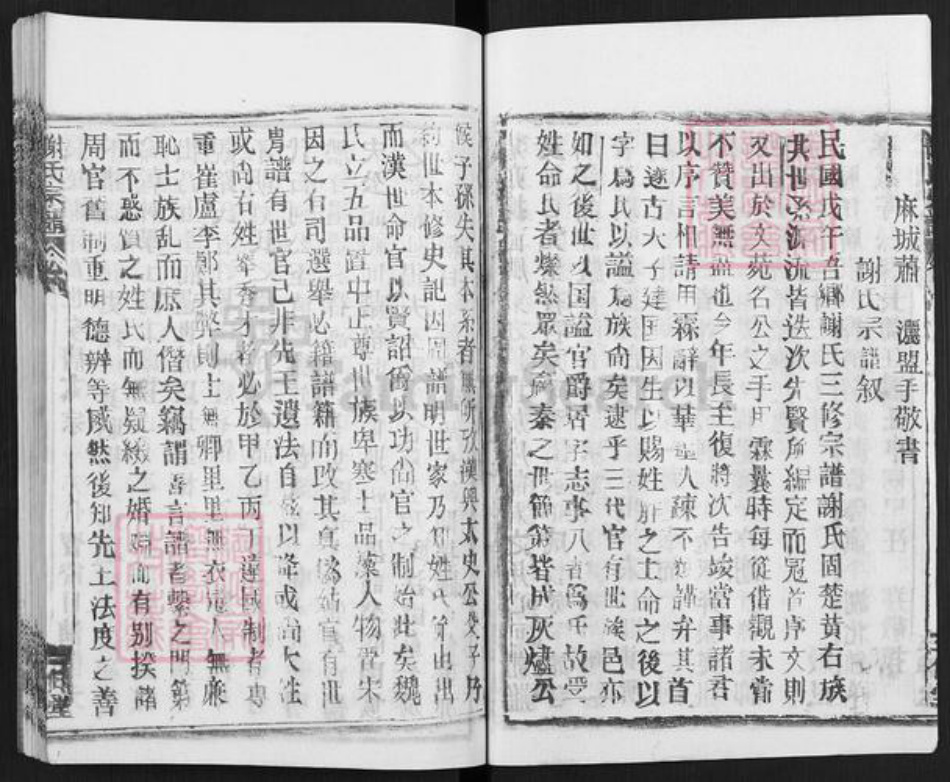 麻城蕭 灑盟手敬書
謝氏宗譜叙
民國戊午吾鄉謝氏三修宗譜謝氏固楚黄右族
其世系源流皆迭次先賢所編定而冠首序文則
又出於文苑名公之手用霖曩時每從借觀未嘗
不贊美無盡也今年長至復將次告竣當事諸君
以序言相請用霖辭以華人疎不獲講弁其首
曰邃古大子建国因生以賜姓胙之土命之後以
字為氏以諡為族尚矣逮乎三代官有世族邑亦
如之後世以国諡官爵居字志事八者為氏故受
姓命氏者燦然眾矣秦之世簡策皆成灰燼公
侯子孫失其本系者無所攷漢興太史公父子乃
約世本修史記因周譜明世家乃知姓氏所由出
而漢世命官以賢詔爵以功尚官之制始此矣魏
氏立五品置中正尊世族卑寒士品藻人物晉宋
因之有司選舉必籍譜籍而攷其真偽故官有世
冑譜有世官已非先王遺法自茲以降或尚大姓
或尚右姓舉秀才者必於甲乙丙丁違國制者專
重崔盧李鄭其弊則士無鄉里里無衣冠人無廉
恥士族乱而庶人僭矣竊謂善言譜者繫之明第
而不惑質之姓氏而無疑綴之婚姻而有别揆諸
周官舊制重明德辨等威然後知先王法度之善
謝氏宗譜